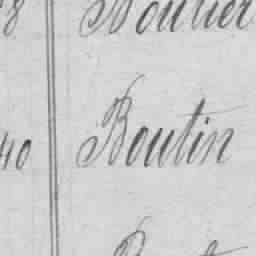 8 Boutier
40 Boutin